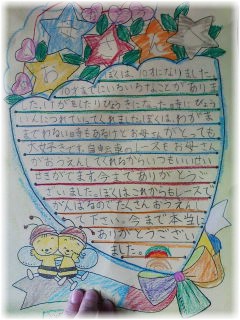 ぼくは、10才になりました。
10才までにいろいろなことがありまし
た。けがをしたりびょうきになった時にびょう
いんにつれていってくれました。ぼくは、わがま
まで わるい日もあるけどお母さんがとっても
大好きです。自転車のレースもお母さん
がおうえんしてくれるからいつもいいせい
せきがでます。今までありがとうご
ざいました。ぼくはこれからもレースで
がんばるのでたくさんおうえんし
て下さい。今まで本当に
ありがとうござい
ました。